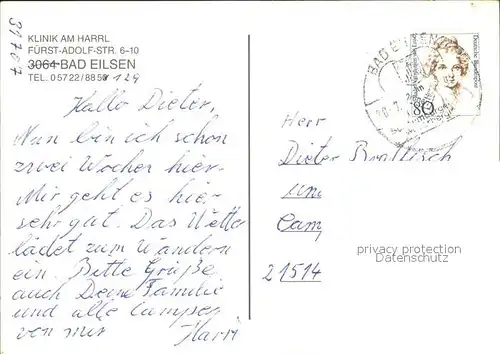 39787
KLINIK AM HARRL
FÜRST-ADOLF-STR. 6-10
3064 BAD EILSEN
TEL. 05722/885
129
Hallo Dieter,
Nun bin ich schon
zwei Wochen hier.
Mir geht es hier
sehr gut. Das Wetter
lädet zum Wandern
ein. Bitte Grüße
auch Deine Familie
und alle Camper
von mir
Harri
Deutsche Bundespost
80
BAD EILSEN
Herr
Dieter
Camp
21514
privacy protection
Datenschutz